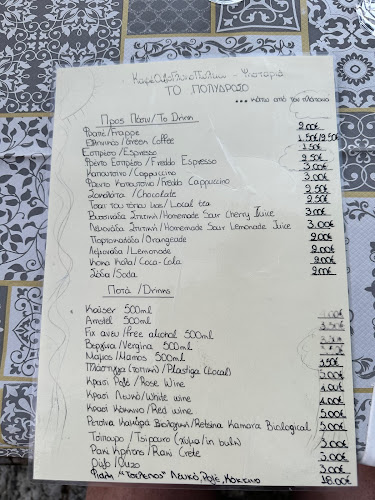 ΤΟ ΠΟΛΥΔΡΟΣΟ
... κάτω από τον πλάτανο
Προς Πόση/To Drink
Φραπέ/Frappe 2.00€
Ελληνικός/Green Coffee 1.50€/2.50€
Εσπρέσο/Espresso 1.50€
Φρέντο Εσπρέσο/Freddo Espresso 2.50€
Καπουτσίνο/Cappuccino 3.00€
Φρέντο Καπουτσίνο/Freddo Cappuccino 3.00€
Σοκολάτα/Chocolate 2.50€
Τσάι του τόπου μας/Local tea 2.50€
Βυσσινάδα Σπιτική/Homemade Sour Cherry Juice 3.00€
Λεμονάδα Σπιτική/Homemade Sour Lemonade Juice 3.00€
Πορτοκαλάδα/Orangeade 2.00€
Λεμονάδα/Lemonade 2.00€
Κόκα Κόλα/Coca-Cola 2.00€
Σόδα/Soda 2.00€
Ποτά/Drinks
Kaiser 500ml
Amstel 500ml
Fix άνευ/free alcohol 500ml
Βεργίνα/Vergina 500ml
Μάμος/Mamos 500ml
(τοπική)/Plastiga (Local) 3.50€
Κρασί Ροζέ/Rose Wine
Κρασί Λευκό/White wine
Κρασί Κόκκινο/Red wine
Ρετσίνα Καμάρα Βιολογική/Retsina Kamara Biological 5.00€
Τσίπουρο/Tsipouro (χύμα/in bulk) 3.00€
Ρακί Κρήτης/Raki Crete 3.00€
Ούζο/Ouzo 3.00€
Φιάλη Λευκό, Ροζέ, Κόκκινο 18.00€